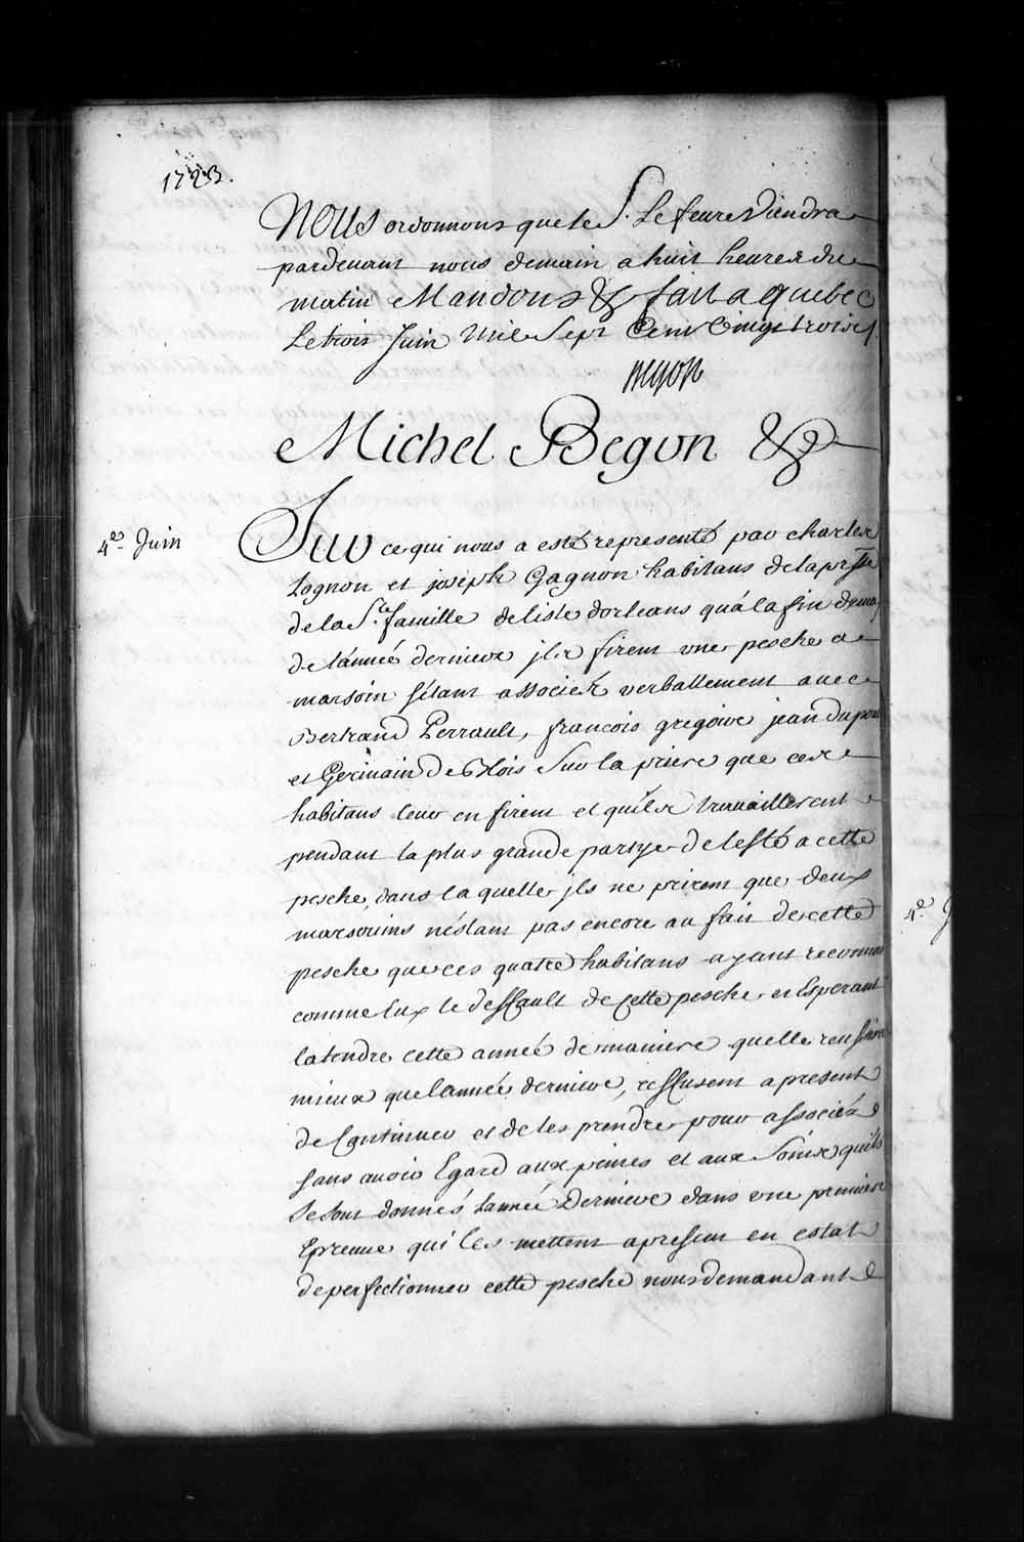 1723.
Nous ordonnons que le S. Lefeure Viendra
pardeuant nous demain a huit heures du
matin Mandons &c fait a quebec
Le trois Juin Mil Sept Cent Vingt trois /.
Begon
Michel Begon &c
4e. Juin
Sur ce qui nous a esté representé par charles
Lognon et joseph Gagnon habitans de la prsse
de la Ste. famille de lisle dorleans quá la fin de may
de lánneé derniere jls firent vne pesche a
marsoin sétant associéz verballement auec
Bertrand Perrault, francois gregoire jean dupont
et Germain de Blois Sur la priere que ces
habitans leur en firent et quils trauaillerent
pendant la plus grande partye de lesté a cette
pesche, dans la quelle jls ne prirent que deux
marsouins néstant pas encore au fait de cette
pesche que ces quatre habitans ayant reconnu
comme Eux le deffault de Cette pesche et Esperant
la tendre cette anneé de maniere quelle reussira
mieux que lanneé derniere, reffusent a present
de Continuer et de les prendre pour associéz
sans auoir Egard aux peines et aux Soins quils
Se sont donnés Lanneé Derniere dans vne premiere
Epreuue qui les mettent apresent en estat
de perfectionner cette pesche nous demandant
4e. J